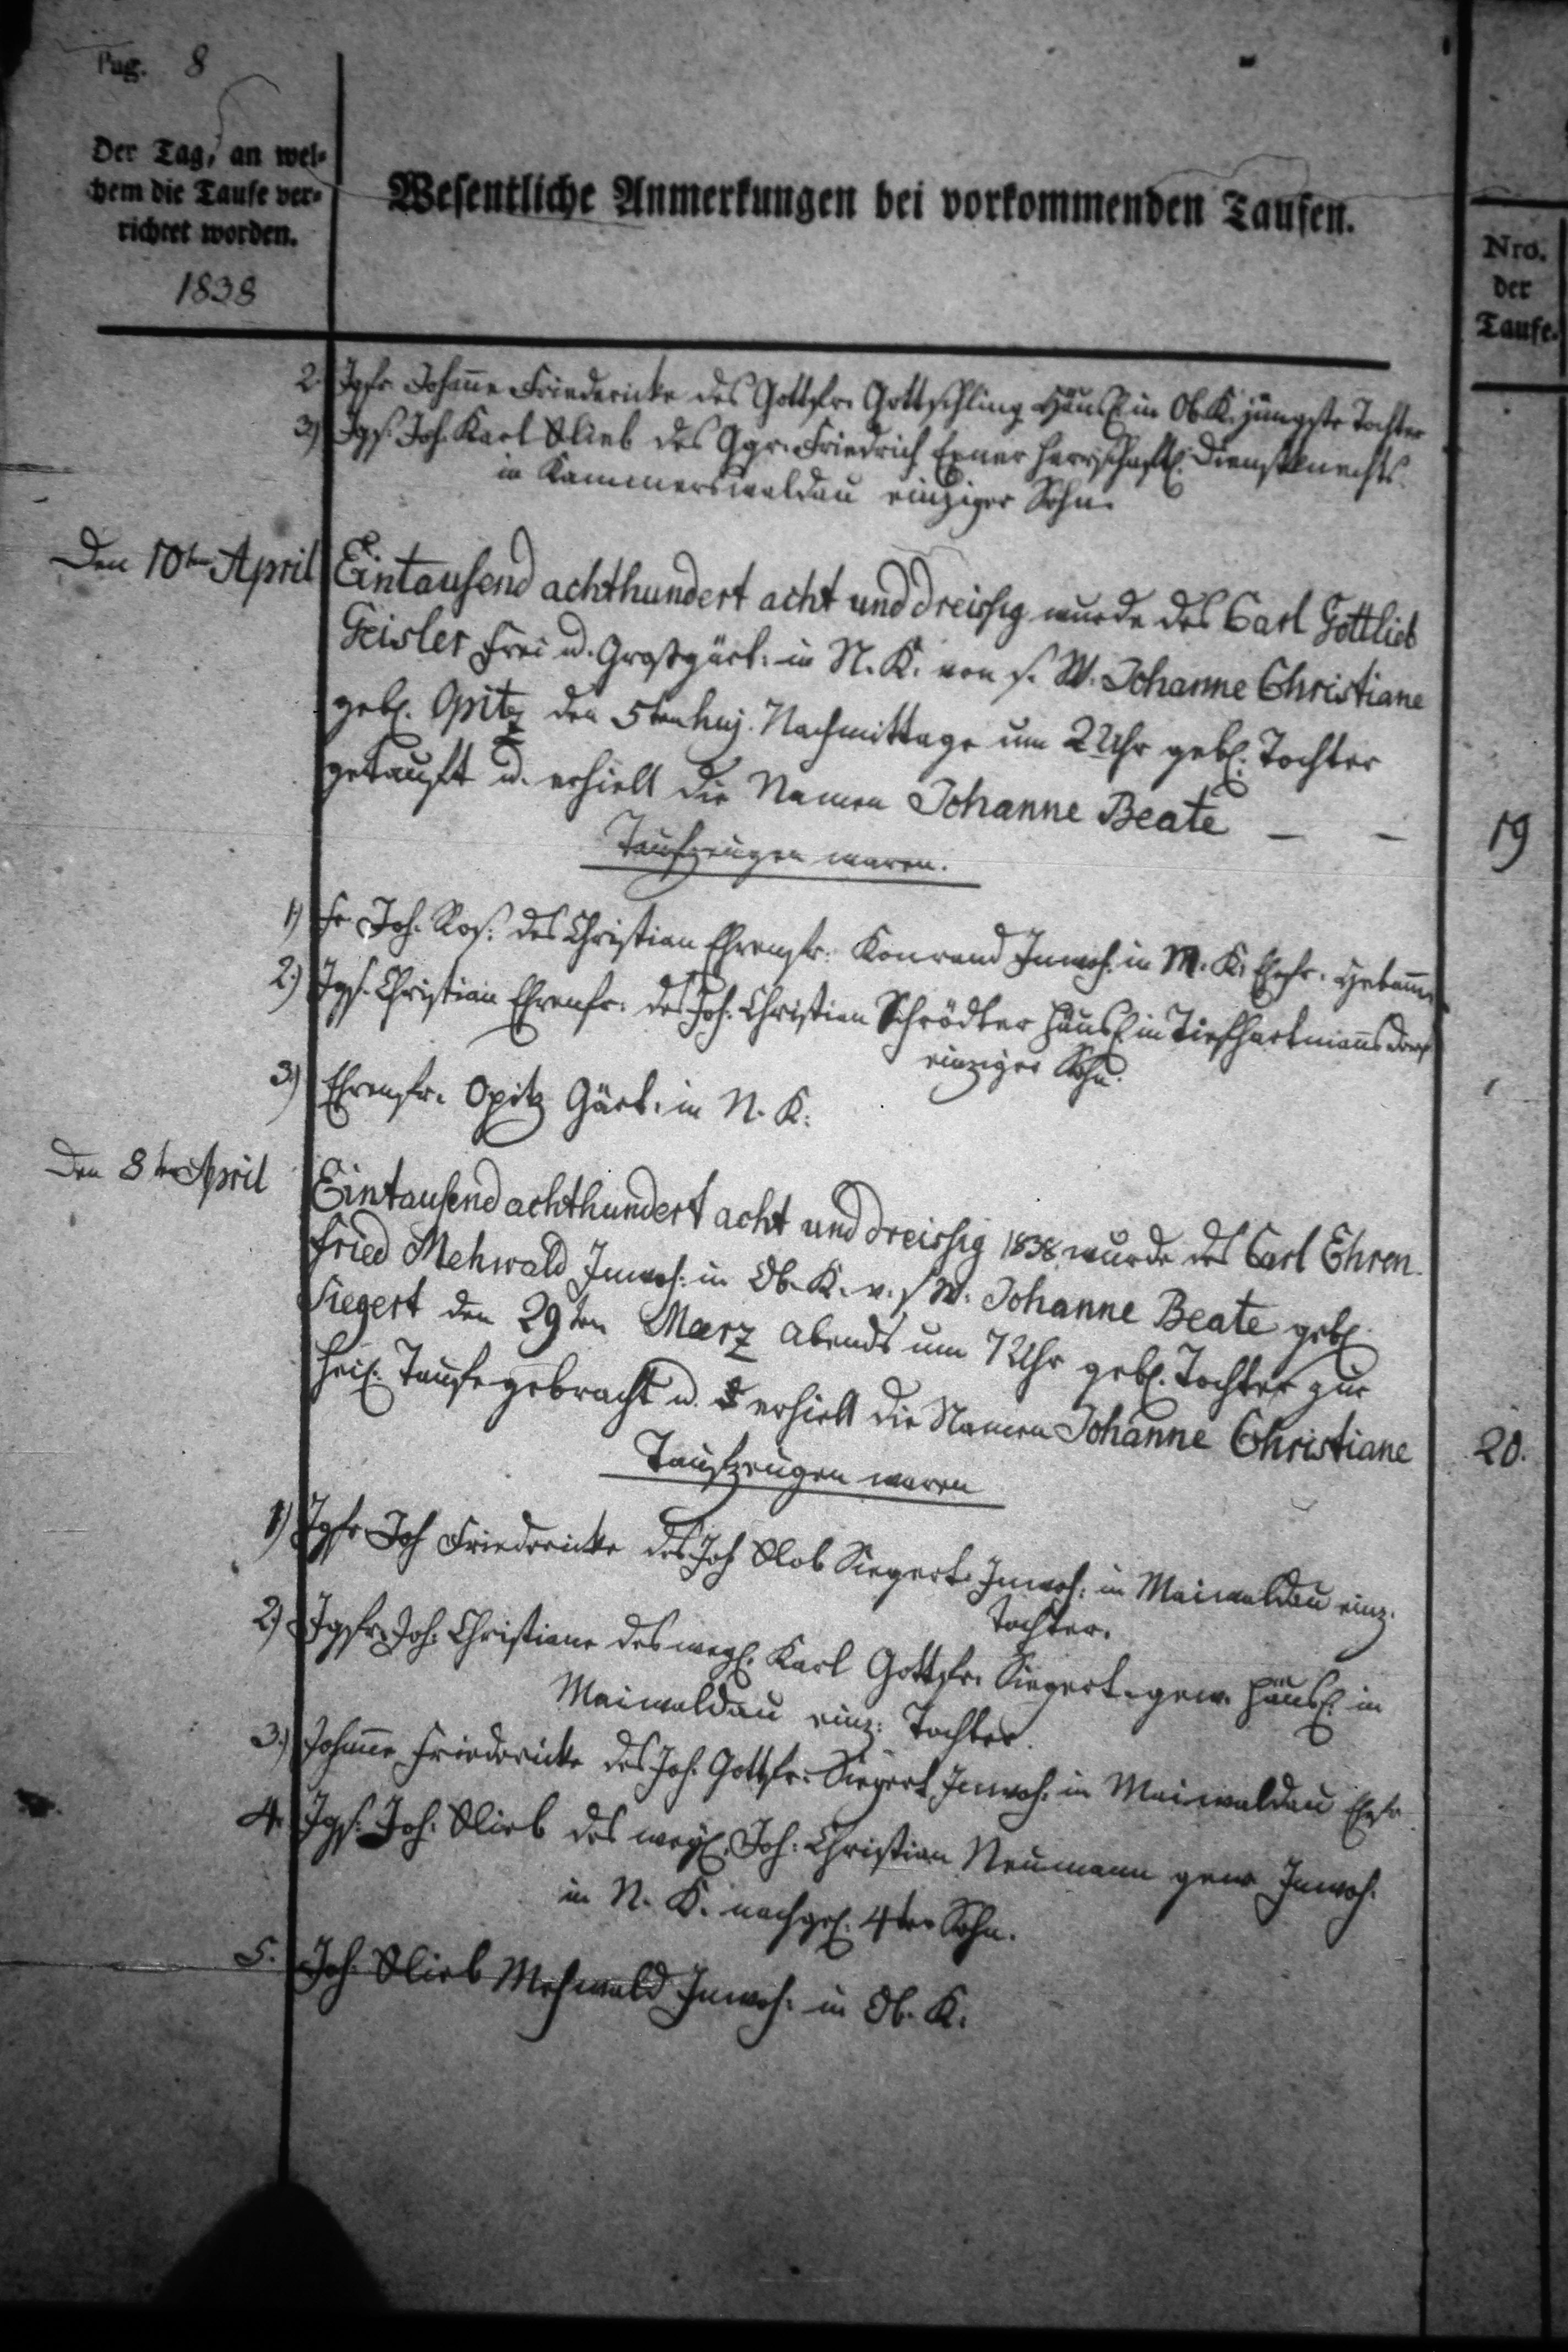 Pag. 8
Der Tag, an wel-
chem die Taufe ver-
richtet worden.
1838
Wesentliche Anmerkungen bei vorkommenden Taufen.
Nro.
der
Taufe.
2. Jgfr. Johanne Friedericke des Gottfr. Gottschling Häusl. in Ob. K. jüngste Tochter
3) Jgs. Joh. Karl Glieb des Ggr. Friedrich Exner herrschaftl. Dienstknechts
in Kammerswaldau einziger Sohn.
Den 10ten April
Eintausend achthundert acht und dreissig wurde des Carl Gottlieb
Geisler Frei u. Großgärt: in N. K. von s. W. Johanne Christiane
geb. Opitz den 5ten huj. Nachmittags um 2 Uhr geb. Tochter
getauft u. erhielt die Namen Johanne Beate — —
19
Taufzeugen waren.
1) Fr. Joh. Ros: des Christian Ehrenfr: Konrand Inwoh. in M. K. Ehefr. Hebamme
2.) Jgs. Christian Ehrenfr: des Joh. Christian Schrödter Häusl. in Tiefhartmannsdorf
einziger Sohn.
3.) Ehrenfr. Opitz Gärt. in N. K.
Den 8ten April
Eintausend achthundert acht und dreissig 1838 wurde des Carl Ehren
fried Mehwald Inwoh: in Ob. K. v. s W. Johanne Beate geb.
Siegert den 29ten Maerz Abends um 7 Uhr geb. Tochter zur
heil. Taufe gebracht u. erhielt die Namen Johanne Christiane
20.
Taufzeugen waren
1) Jgfr Joh Friedericke des Joh Glob Siegert Inwoh: in Maiwaldau einz.
Tochter.
2) Jgfr. Joh. Christiane des weyl. Karl Gottfr. Siegert gew. Häusl. in
Maiwaldau einz: Tochter.
3.) Johanne Friedericke des Joh. Gottfr. Siegert Inwoh. in Maiwaldau Ehefr.
4. Jgs. Joh. Glieb des weyl. Joh: Christian Neumann gew Inwoh.
in N. K. nachgel. 4ter Sohn.
5. Joh. Glieb Mehwald Inwoh: in Ob. K.